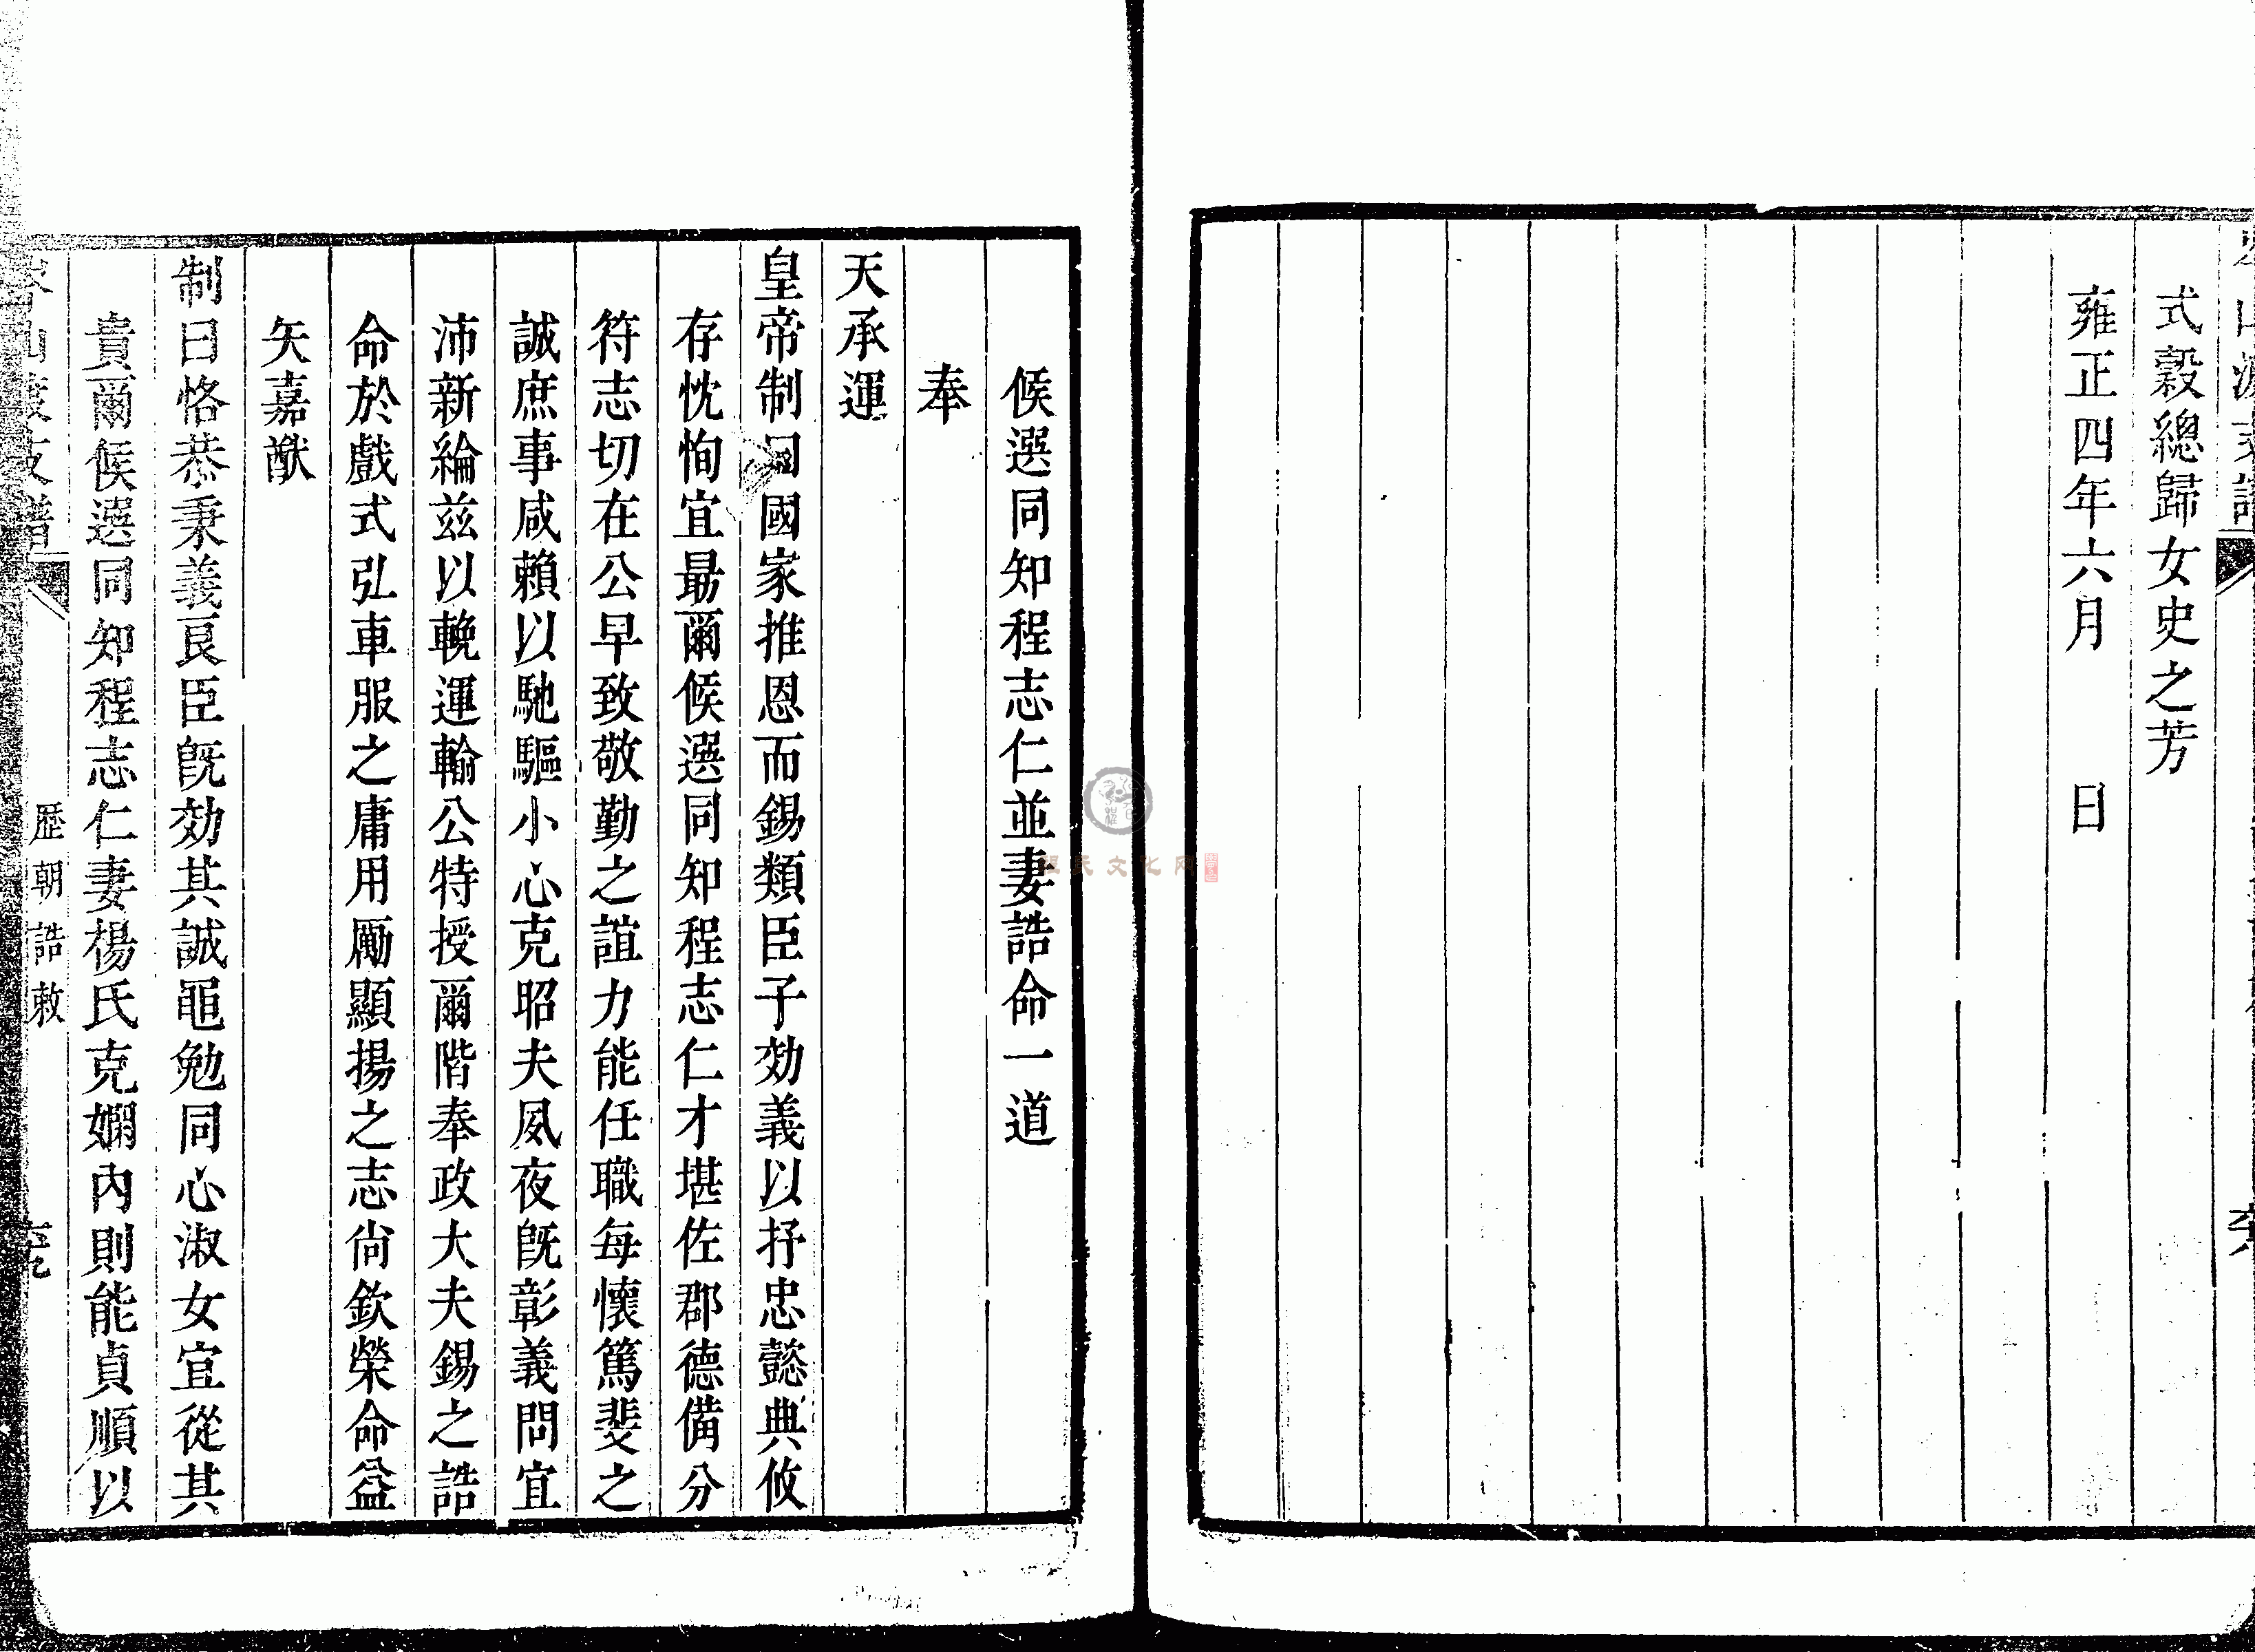 式穀總歸女史之芳
雍正四年六月　　日
候選同知程志仁並妻誥命一道
奉
天承運
皇帝制曰國家推恩而錫類臣子効義以抒忠懿典攸
存忱恂宜勗爾候選同知程志仁才堪佐郡德備分
符志切在公早致敬勤之誼力能任職每懷篤斐之
誠庶事咸賴以馳驅小心克昭夫夙夜旣彰義問宜
沛新綸兹以輓運輸公特授爾階奉政大夫錫之誥
命於戲式弘車服之庸用勵顯揚之志尙欽榮命益
矢嘉猷
制曰恪恭秉義良臣旣効其誠黽勉同心淑女宜從其
貴爾候選同知程志仁妻楊氏克嫻內則能貞順以
歷朝誥敕
程氏文化网